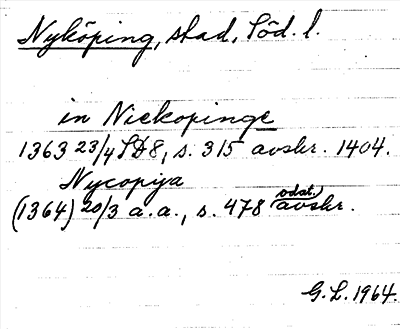 Nyköping, stad, Söd. l.
in Nickopinge
1363 23/4 SD8, s. 315 avskr. 1404.
Nycopya
(1364) 20/3 a.a., s. 478 odat. avskr.
G.L. 1964.